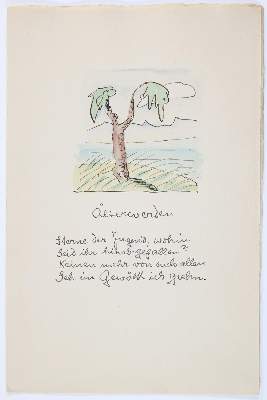 Älterwerden
Sterne der Jugend, wohin
Seid ihr hinab-gefallen?
Keinen mehr von euch allen
Seh im Gewölk ich ziehn.